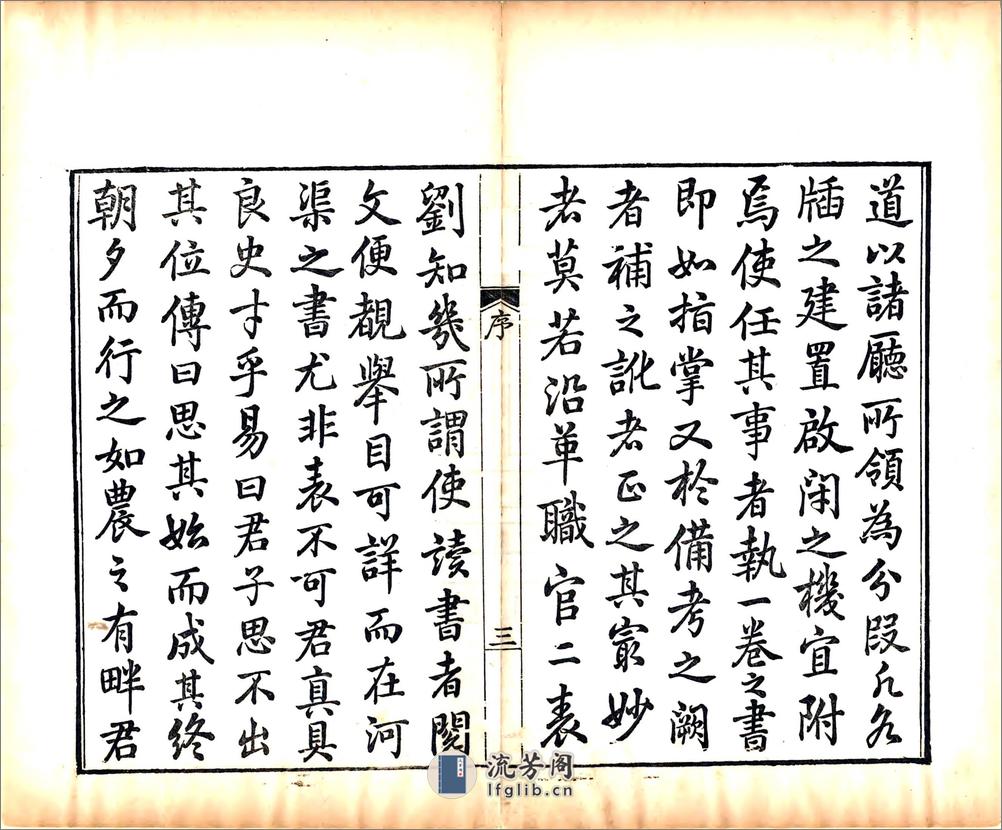 道以諸廳所領為分段凡各
牐之建置啟閉之機宜附
焉使任其事者執一卷之書
即如指掌又於備考之闕
者補之訛者正之其寂妙
者莫若沿革職官二表
序
三
劉知幾所謂使讀書者閱
文便覩舉目可詳而在河
渠之書尤非表不可君真具
良史才乎易曰君子思不出
其位傳曰思其始而成其終
朝夕而行之如農之有畔君
流芳阁
lfglib.cn